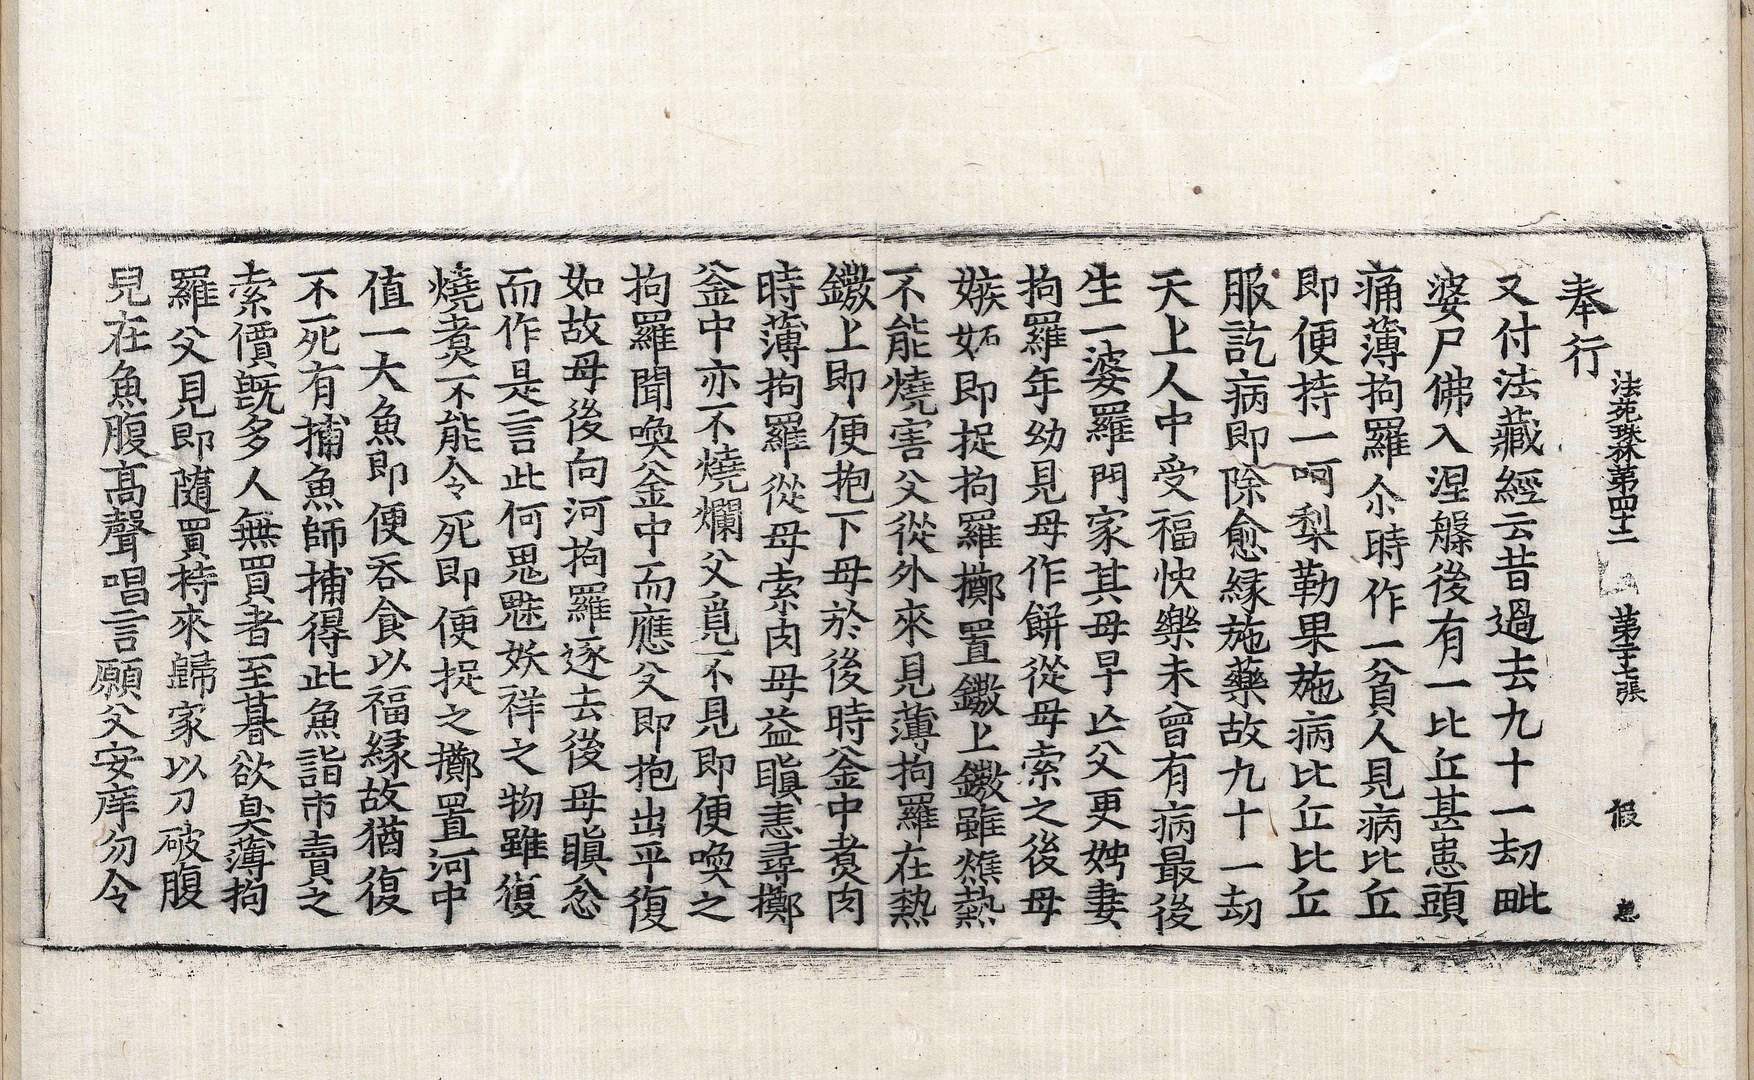 法苑珠林第四十二 第二十七張 假
奉行
又付法藏經云昔過去九十一劫毗
婆尸佛入涅槃後有一比丘甚患頭
痛薄拘羅尒時作一貧人見病比丘
即便持一呵梨勒果施病比丘比丘
服訖病即除愈緣施藥故九十一劫
天上人中受福快樂未曾有病最後
生一婆羅門家其母早亡父更娉妻
拘羅年幼見母作餅從母索之後母
嫉妬即捉拘羅擲置鏊上鏊雖燋熱
不能燒害父從外來見薄拘羅在熱
鏊上即便抱下母於後時釜中煑肉
時薄拘羅從母索肉母益瞋恚尋擲
釜中亦不燒爛父覓不見即便喚之
拘羅聞喚釜中而應父即抱出平復
如故母後向河拘羅逐去後母瞋忿
而作是言此何鬼魅妖祥之物雖復
燒煑不能令死即便捉之擲置河中
值一大魚即便吞食以福緣故猶復
不死有捕魚師捕得此魚詣市賣之
索價旣多人無買者至暮欲臭薄拘
羅父見即隨買持來歸家以刀破腹
兒在魚腹高聲唱言願父安庠勿令